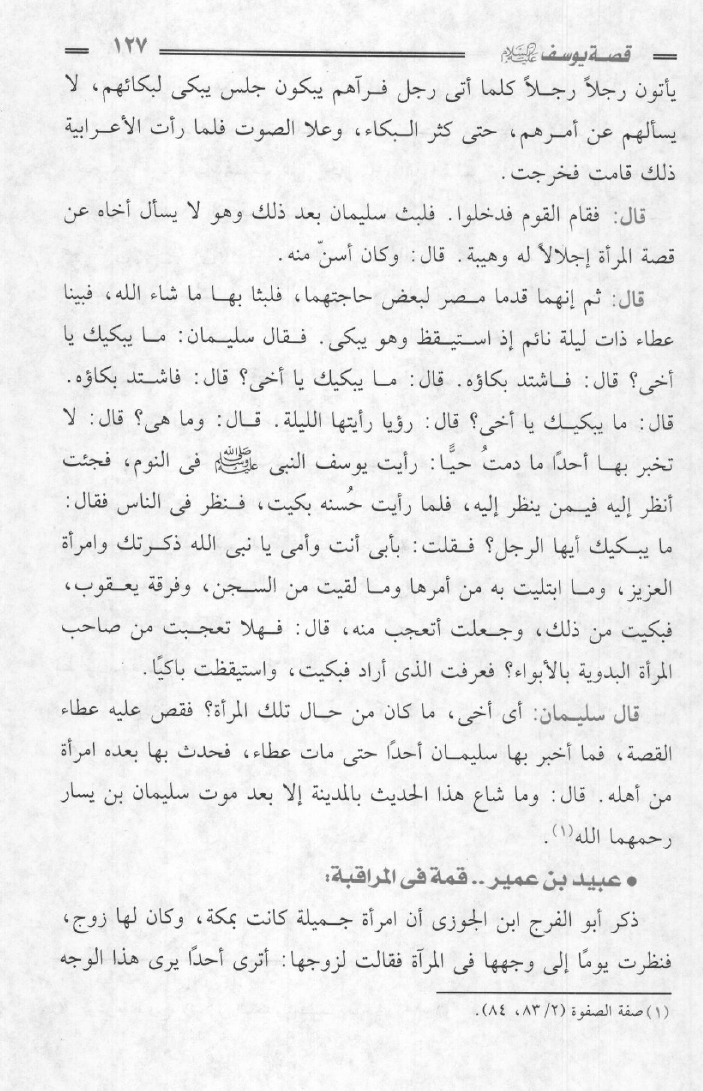 قصة يوسف عليه السلام ١٢٧
يأتون رجلاً رجلاً كلما أتى رجل فرآهم يبكون جلس يبكى لبكائهم، لا
يسألهم عن أمرهم، حتى كثر البكاء، وعلا الصوت فلما رأت الأعرابية
ذلك قامت فخرجت.
قال: فقام القوم فدخلوا. فلبث سليمان بعد ذلك وهو لا يسأل أخاه عن
قصة المرأة إجلالاً له وهيبة. قال: وكان أسنّ منه.
قال: ثم إنهما قدما مصر لبعض حاجتهما، فلبثا بها ما شاء الله، فبينا
عطاء ذات ليلة نائم إذ استيقظ وهو يبكى. فقال سليمان: ما يبكيك يا
أخى؟ قال: فاشتد بكاؤه. قال: ما يبكيك يا أخى؟ قال: فاشتد بكاؤه.
قال: ما يبكيك يا أخى؟ قال: رؤيا رأيتها الليلة. قال: وما هى؟ قال: لا
تخبر بها أحدًا ما دمتُ حيًّا: رأيت يوسف النبى ﷺ فى النوم، فجئت
أنظر إليه فيمن ينظر إليه، فلما رأيت حُسنه بكيت، فنظر فى الناس فقال:
ما يبكيك أيها الرجل؟ فقلت: بأبى أنت وأمى يا نبى الله ذكرتك وامرأة
العزيز، وما ابتليت به من أمرها وما لقيت من السجن، وفرقة يعقوب،
فبكيت من ذلك، وجعلت أتعجب منه، قال: فهلا تعجبت من صاحب
المرأة البدوية بالأبواء؟ فعرفت الذى أراد فبكيت، واستيقظت باكيًا.
قال سليمان: أى أخى، ما كان من حال تلك المرأة؟ فقص عليه عطاء
القصة، فما أخبر بها سليمان أحدًا حتى مات عطاء، فحدث بها بعده امرأة
من أهله. قال: وما شاع هذا الحديث بالمدينة إلا بعد موت سليمان بن يسار
رحمهما الله(١).
• عبيد بن عمير .. قمة فى المراقبة:
ذكر أبو الفرج ابن الجوزى أن امرأة جميلة كانت بمكة، وكان لها زوج،
فنظرت يومًا إلى وجهها فى المرآة فقالت لزوجها: أترى أحدًا يرى هذا الوجه
(١) صفة الصفوة (٢/ ٨٣، ٨٤).